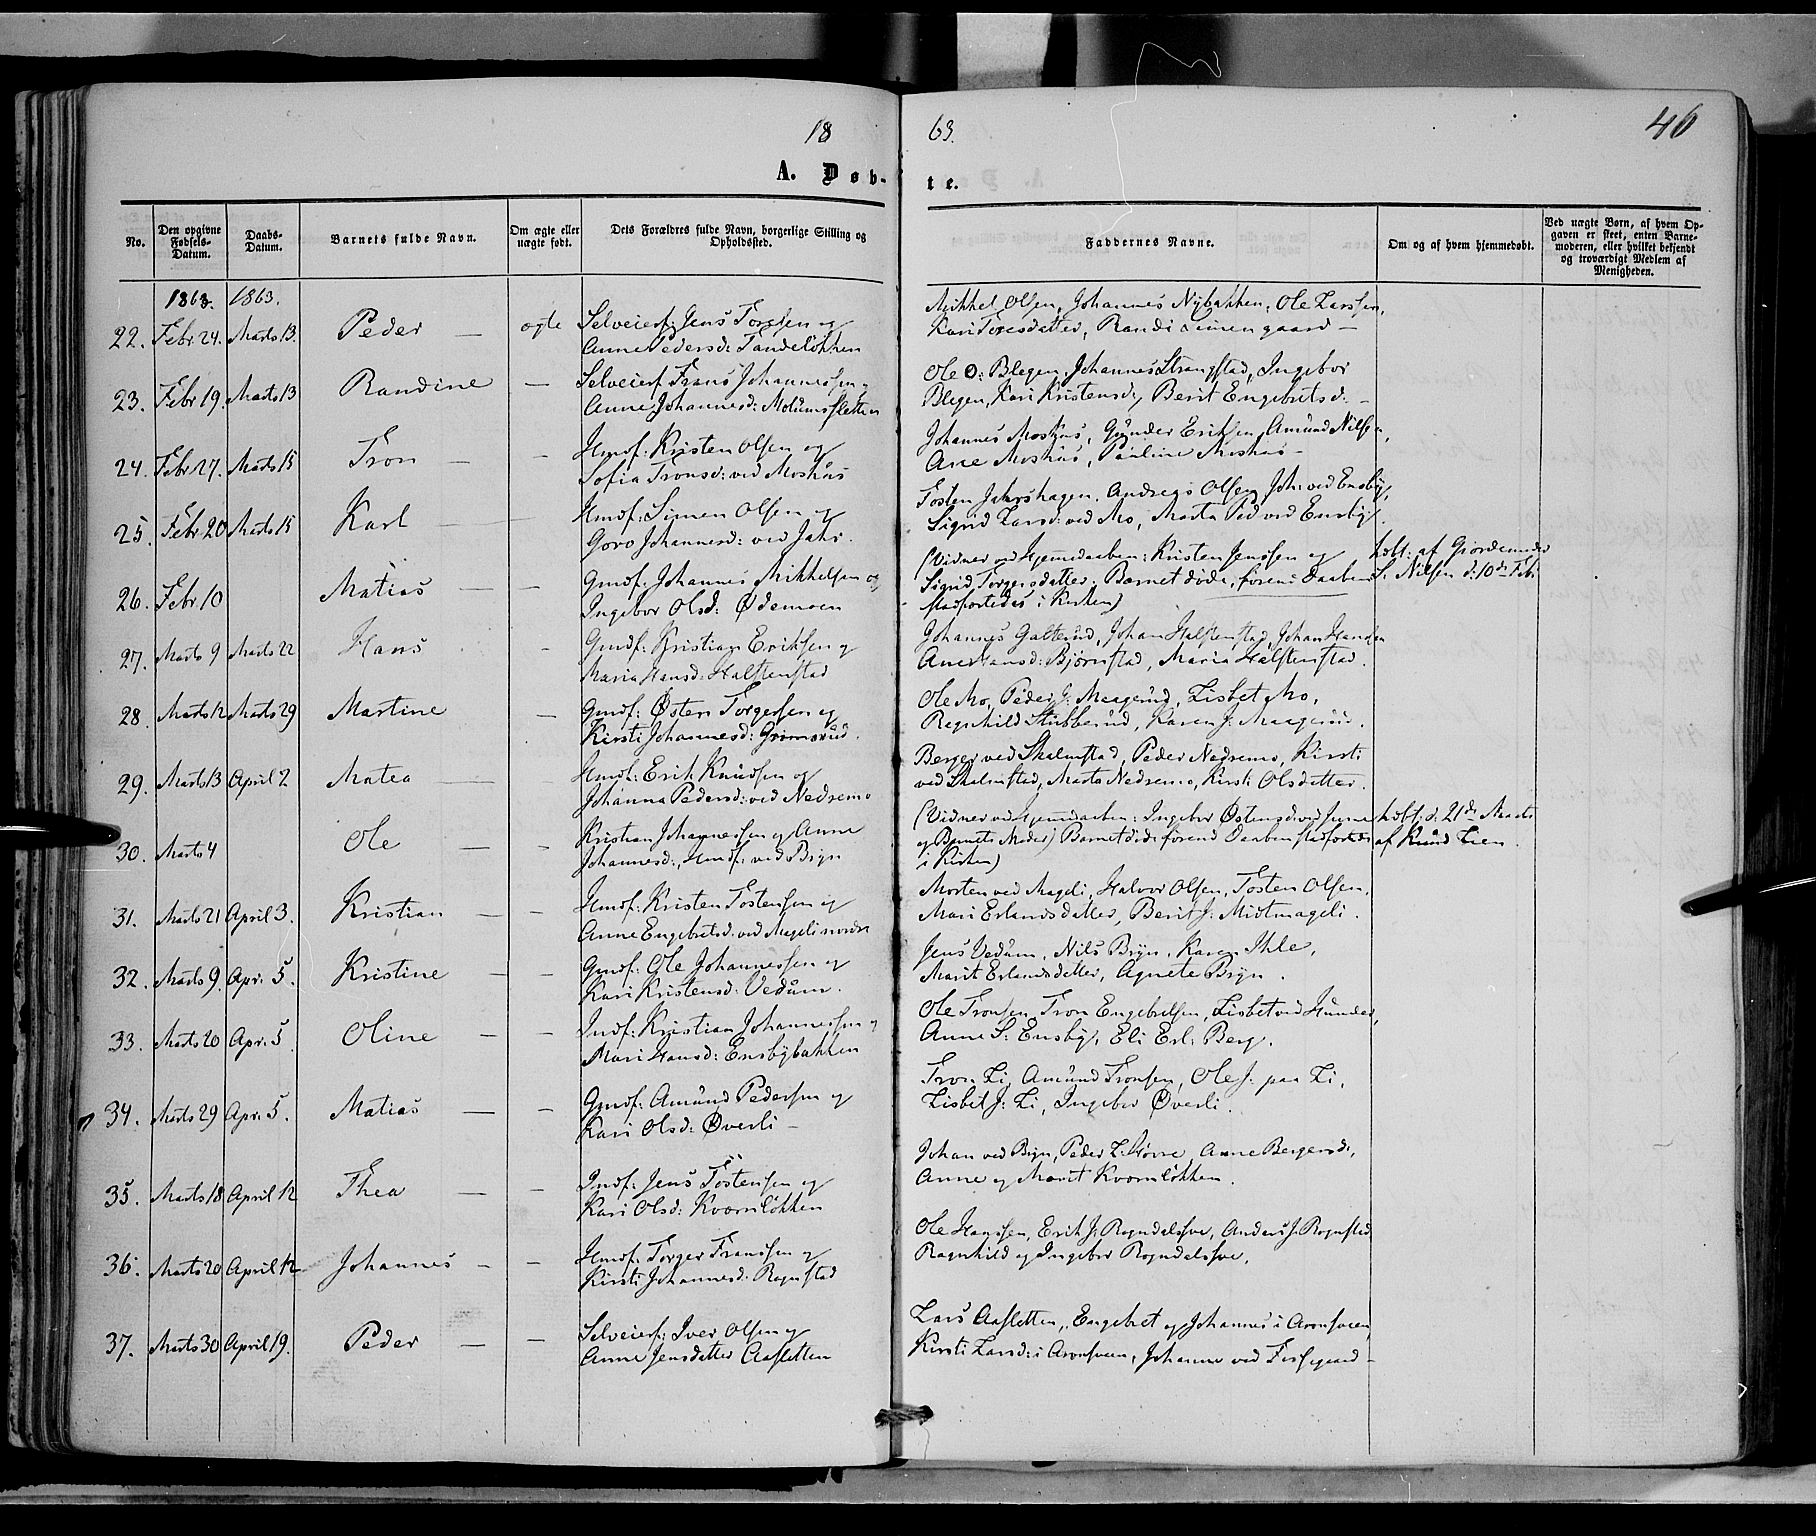 18 63.
46
A. Døb-te.
No.
Den opgivne Fødsels-Datum.
Daabs-Datum.
Barnets fulde Navn.
Om ægte eller uægte født.
Dets Forældres fulde Navn, borgerlige Stilling og Opholdssted.
Faddernes Navne.
Om og af hvem hjemmedøbt.
Ved uægte Børn, af hvem Opgaven er skeet, enten Barnemoderen, eller hvilket bekjendt og troværdigt Medlem af Menigheden.
1863. 1863.
22. Febr 24. Marts 13. Peder — ægte
Selveierf. Jens Torgersen og
Anne Pedersd: Tandeløkken
Mikkel Olsen, Johannes Nybakken, Ole Larssen,
Kari Toresdatter, Randi Linnengaard —
23. Febr 19. Marts 13 Randine —
Selveierf Frans Johannessen og
Anne Johannesd: Molumssletten
Ole O: Blegen, Johannes Strangstad, Ingebor
Blegen, Kari Kristensd, Berit Engebretsd: —
24. Febr. 27. Marts 15 Tron — —
Hmdf: Kristen Olsen og
Sofia Tronsd: ved Moshus
Johannes Moshus, Gunder Eriksen, Amund Nilsen,
Ane Moshus, Pauline Moshus —
25. Febr. 20 Marts 15 Karl —
Hmdf: Simen Olsen og
Goro Johannesd: ved Jahr.
Tosten Jahrshagen, Andreas Olsen, Joh: ved Ensby,
Sigrid Larsd: ved Mo, Marta Ped ved Ensby.
26. Febr. 10 Matias — —
Gmdf: Johannes Mikkelsen og
Ingebor Olsd: Ødemoen
(Vidner ved Hjemmedaaben: Kristen Jenssen og
Sigrid Torgersdatter. Barnet døde, førend Daaben
stadfæstedes i Kirken)
hdbt: af Gjordemoder
S. Nilsen d: 10de Feb:
27. Marts 9 Marts 22 Hans —
Gmdf: Kristian Eriksen og
Maria Hansd: Halstenstad
Johannes Galterud, Johan Halstenstad, Johan Hansen
Ane Hansd: Bjørnstad, Maria Halstenstad.
28. Marts 12 Marts 29 Martine —
Gmdf: Østen Torgersen og
Kirsti Johannesd: Grimsrud.
Ole Mo, Peder J: Maagerud, Lisbet Mo,
Regnhild Stubberud, Karen J: Maagerud.
29. Marts 13 April 2 Matea — —
Hmdf: Erik Knudsen og
Johanna Pedersd: ved Nedremo
Berger ved Skalmstad, Peder Nedremo, Kirsti
ved Skalmstad, Marta Nedremo, Kirsti Olsdatter.
30. Marts 4 Ole — —
Kristian Johannessen og Anne
Johannesd., Hmdf: ved Bryn
(Vidner ved Hjemmedaaben: Ingebor Østensd: ved
og Barnets Moder) Barnet døde førend Daaben stadfæstedes
i Kirken)
hdbt: d: 21de Marts
af Knud Lien.
31. Marts 21 April 3. Kristian — —
Hmdf: Kristen Tostensen og
Anne Engebretsd: ved Mageli nordre
Morten ved Mageli, Halvor Olsen, Tosten Olsen,
Mari Erlandsdatter, Berit J: Midtmageli.
32. Marts 9. Apr: 5. Kristine — —
Gmdf: Ole Johannessen og
Kari Kristensd: Vedum.
Jens Vedum, Nils Bryn, Karen Ihle,
Marit Erlandsdatter, Agnete Bryn.
33. Marts 20 Apr: 5. Oline — —
Indf: Kristian Johannessen og
Mari Hansd: Ensbybakken
Ole Tronsen, Tron Engebretsen, Lisbet ved Hunder,
Anne S: Ensby, Eli Erl: Berg.
34. Marts 29 Apr: 5. Matias — —
Gmdf: Amund Pedersen og
Kari Olsd: Øverli —
Tron Li, Amund Tronsen, Ole J: paa Li,
Lisbet J: Li, Ingebor Øverli.
35. Marts 18 April 12 Thea — —
Indf: Jens Tostensen og
Kari Olsd: Kvernløkken
Johan ved Bryn, Peder L: Hovre, Anne Bergersd:,
Anne og Marit Kvernløkken.
36. Marts 20 April 12 Johannes — —
Hmdf: Torger Franssen og
Kirsti Johannesd: Rognstad
Ole Hanssen, Erik J: Rogndalshoe, Anders J: Rognstad
Ragnhild og Ingebor Rogndalshoe.
37. Marts 30 April 19. Peder — —
Selveierf: Iver Olsen og
Anne Jensdatter Aasletten
Lars Aasletten, Engebret og Johannes i Aronsveen
Kirsti Larsd: i Aronsveen, Johanne ved Forsegaard —